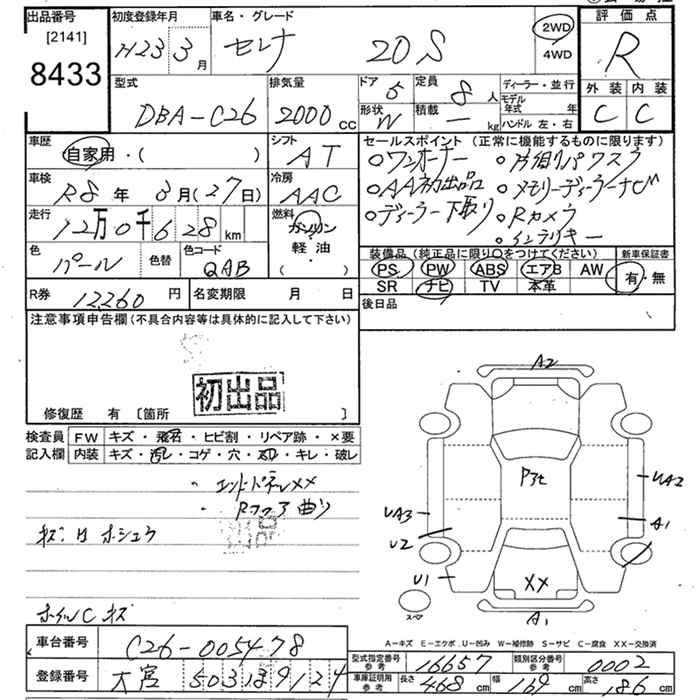 出品番号
[2141]
8433
初度登録年月
H23 3 月
車名・グレード
セレナ 20S
2WD
4WD
評価点
R
外装 内装
C C
型式
DBA-C26
排気量
2000 cc
ドア 5
定員 8 人
形状 W
積載 — kg
ディーラー・並行
モデル年式 年
ハンドル 左・右
車歴
自家用・( )
シフト
AT
車検
R8 年 3月(27日)
冷房
AAC
走行
12万0千628 km
燃料
ガソリン
軽・油
( )
色
パール
色替
色コード
QAB
R券 12260 円
名変期限 月 日
セールスポイント(正常に機能するものに限ります)
○ワンオーナー ○片側パワスラ
○AA初出品 ○メモリーディーラーナビ
○ディーラー下取り ○Rカメラ
○インテリキー
装備品(純正品に限り○をつけてください)
PS PW ABS エアB AW
SR ナビ TV 本革
新車保証書
有・無
後日品
注意事項申告欄(不具合内容等は具体的に記入して下さい)
初出品
修復歴 有 [箇所 ]
検査員記入欄
FW キズ・飛石・ヒビ割・リペア跡・×要
内装 キズ・汚レ・コゲ・穴・スリ・キレ・破レ
・エンドパネルXX
・Rフロア曲り
キズ凹ホシュウ
ホイルCキズ
A2
P3t
UA2
UA3
A1
U2
U1
XX
スペア
A1
A-キズ E-エクボ U-凹み W-補修跡 S-サビ C-腐食 XX-交換済
車台番号 C26-005478
登録番号 大宮 503 す 9124
型式指定番号 参考 16657
類別区分番号 参考 0002
車庫証明用 参考 長さ 468 cm 幅 169 cm 高さ 186 cm